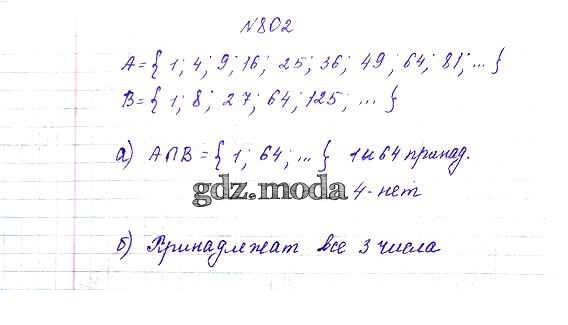 №802
A={ 1; 4; 9; 16; 25; 36; 49; 64; 81; ... }
B={ 1; 8; 27; 64; 125; ... }
а) A∩B={ 1; 64; ... } 1 и 64 принад.
gdz.moda
4-нет
б) Принадлежат все 3 числа